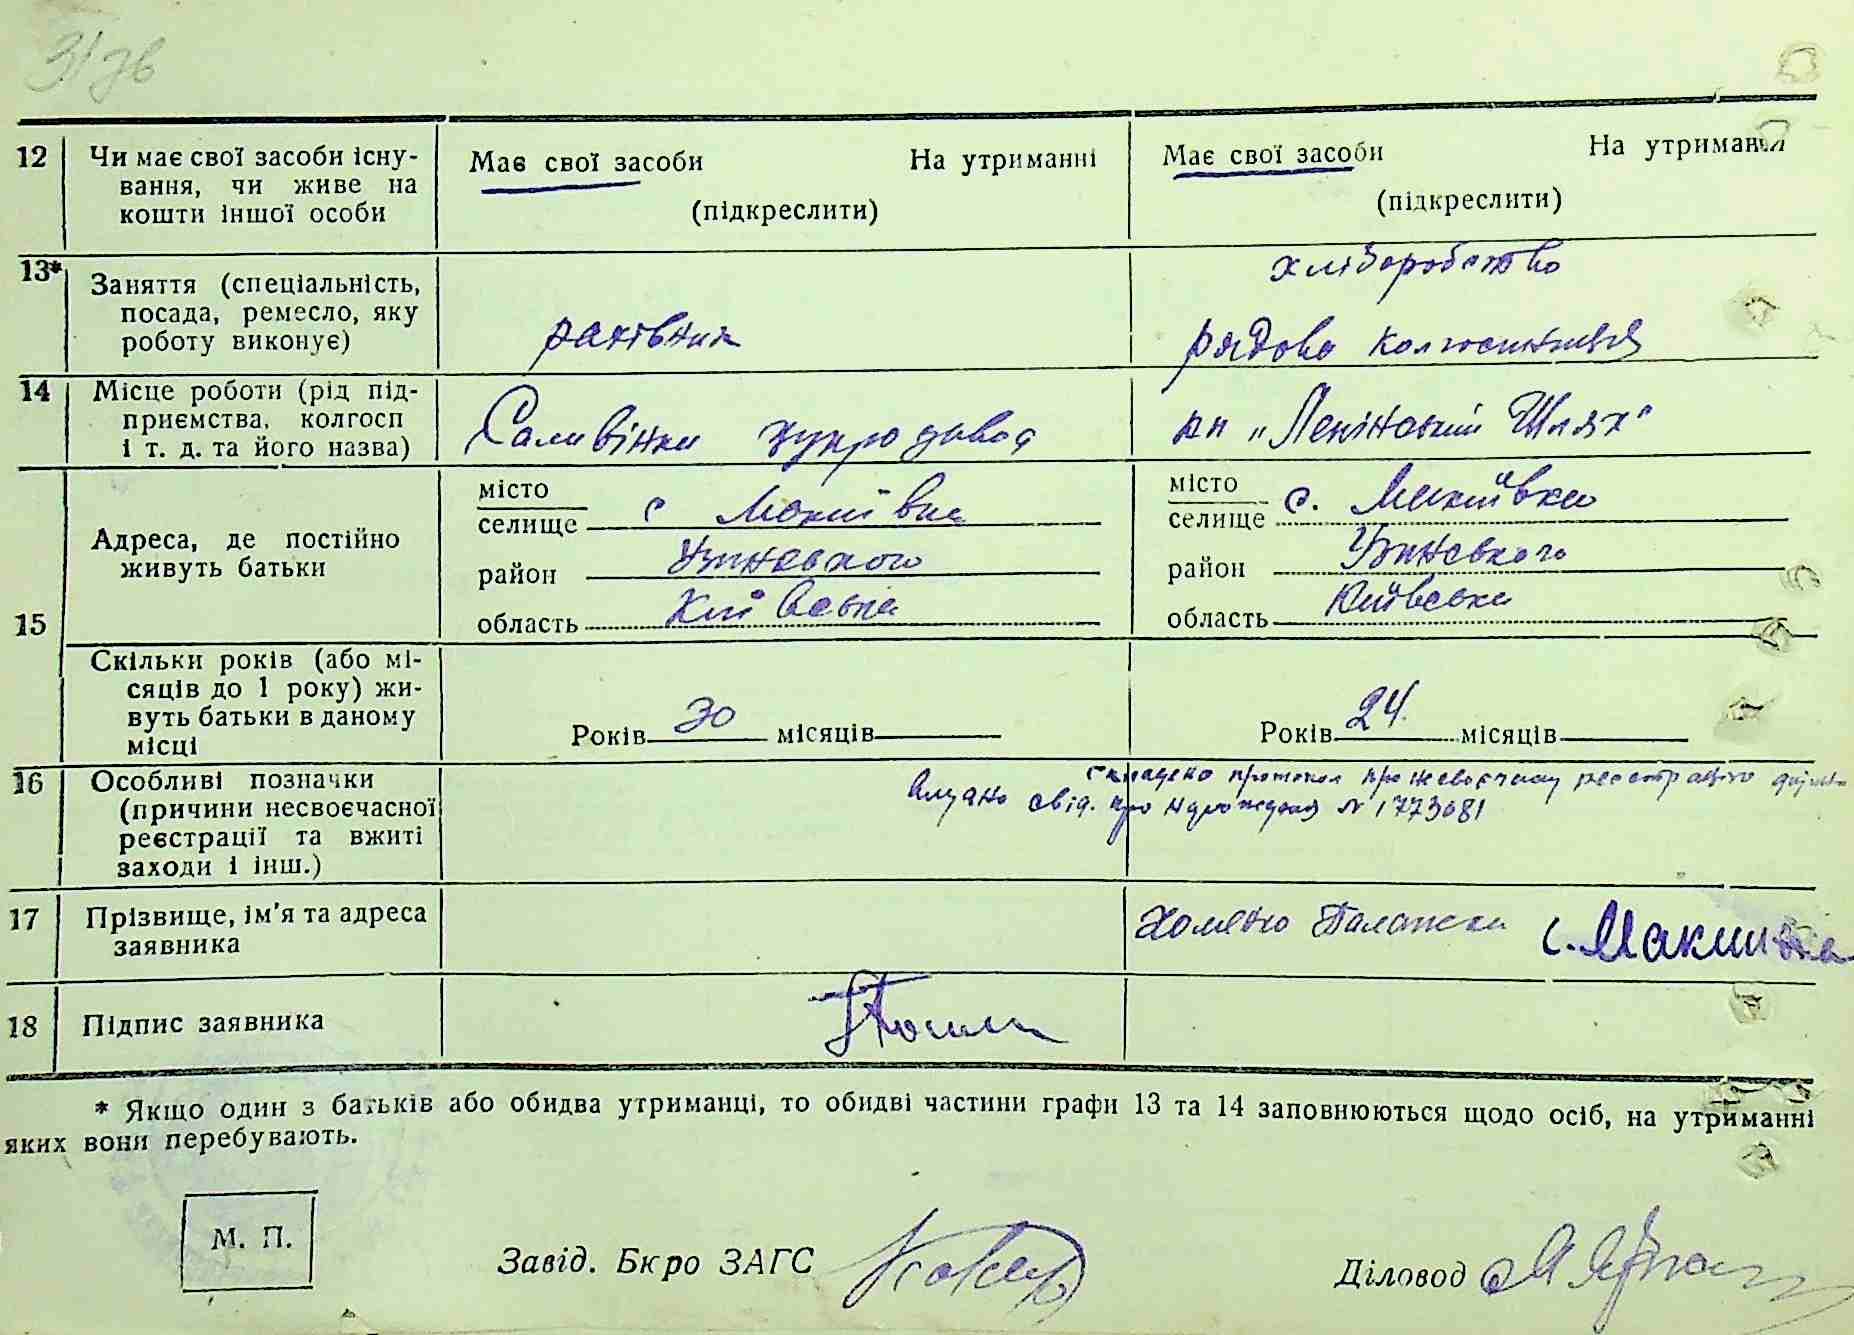 31 зв
12 Чи має свої засоби існу-
вання, чи живе на
кошти іншої особи
Має свої засоби На утриманні
(підкреслити)
Має свої засоби На утриманні
(підкреслити)
13* Заняття (спеціальність,
посада, ремесло, яку
роботу виконує)
рахівник
хліборобство
рядова колгоспниця
14 Місце роботи (рід під-
приємства, колгосп
і т. д. та його назва)
Саливінки цукрозавод
кп „Ленінський Шлях"
15 Адреса, де постійно
живуть батьки
місто
селище с Макиївка
район Узинського
область Київська
місто
селище с. Макиївка
район Узинського
область Київська
Скільки років (або мі-
сяців до 1 року) жи-
вуть батьки в даному
місці
Років 30 місяців
Років 24. місяців
16 Особливі позначки
(причини несвоєчасної
реєстрації та вжиті
заходи і інш.)
складено протокол про несвоєчасну реєстрацію
Видано свід. про народження № 1773681
17 Прізвище, ім'я та адреса
заявника
Хоменко Палажка с. Макиївка
18 Підпис заявника
* Якщо один з батьків або обидва утриманці, то обидві частини графи 13 та 14 заповнюються щодо осіб, на утриманні
яких вони перебувають.
М. П.
Завід. Бюро ЗАГС
Діловод